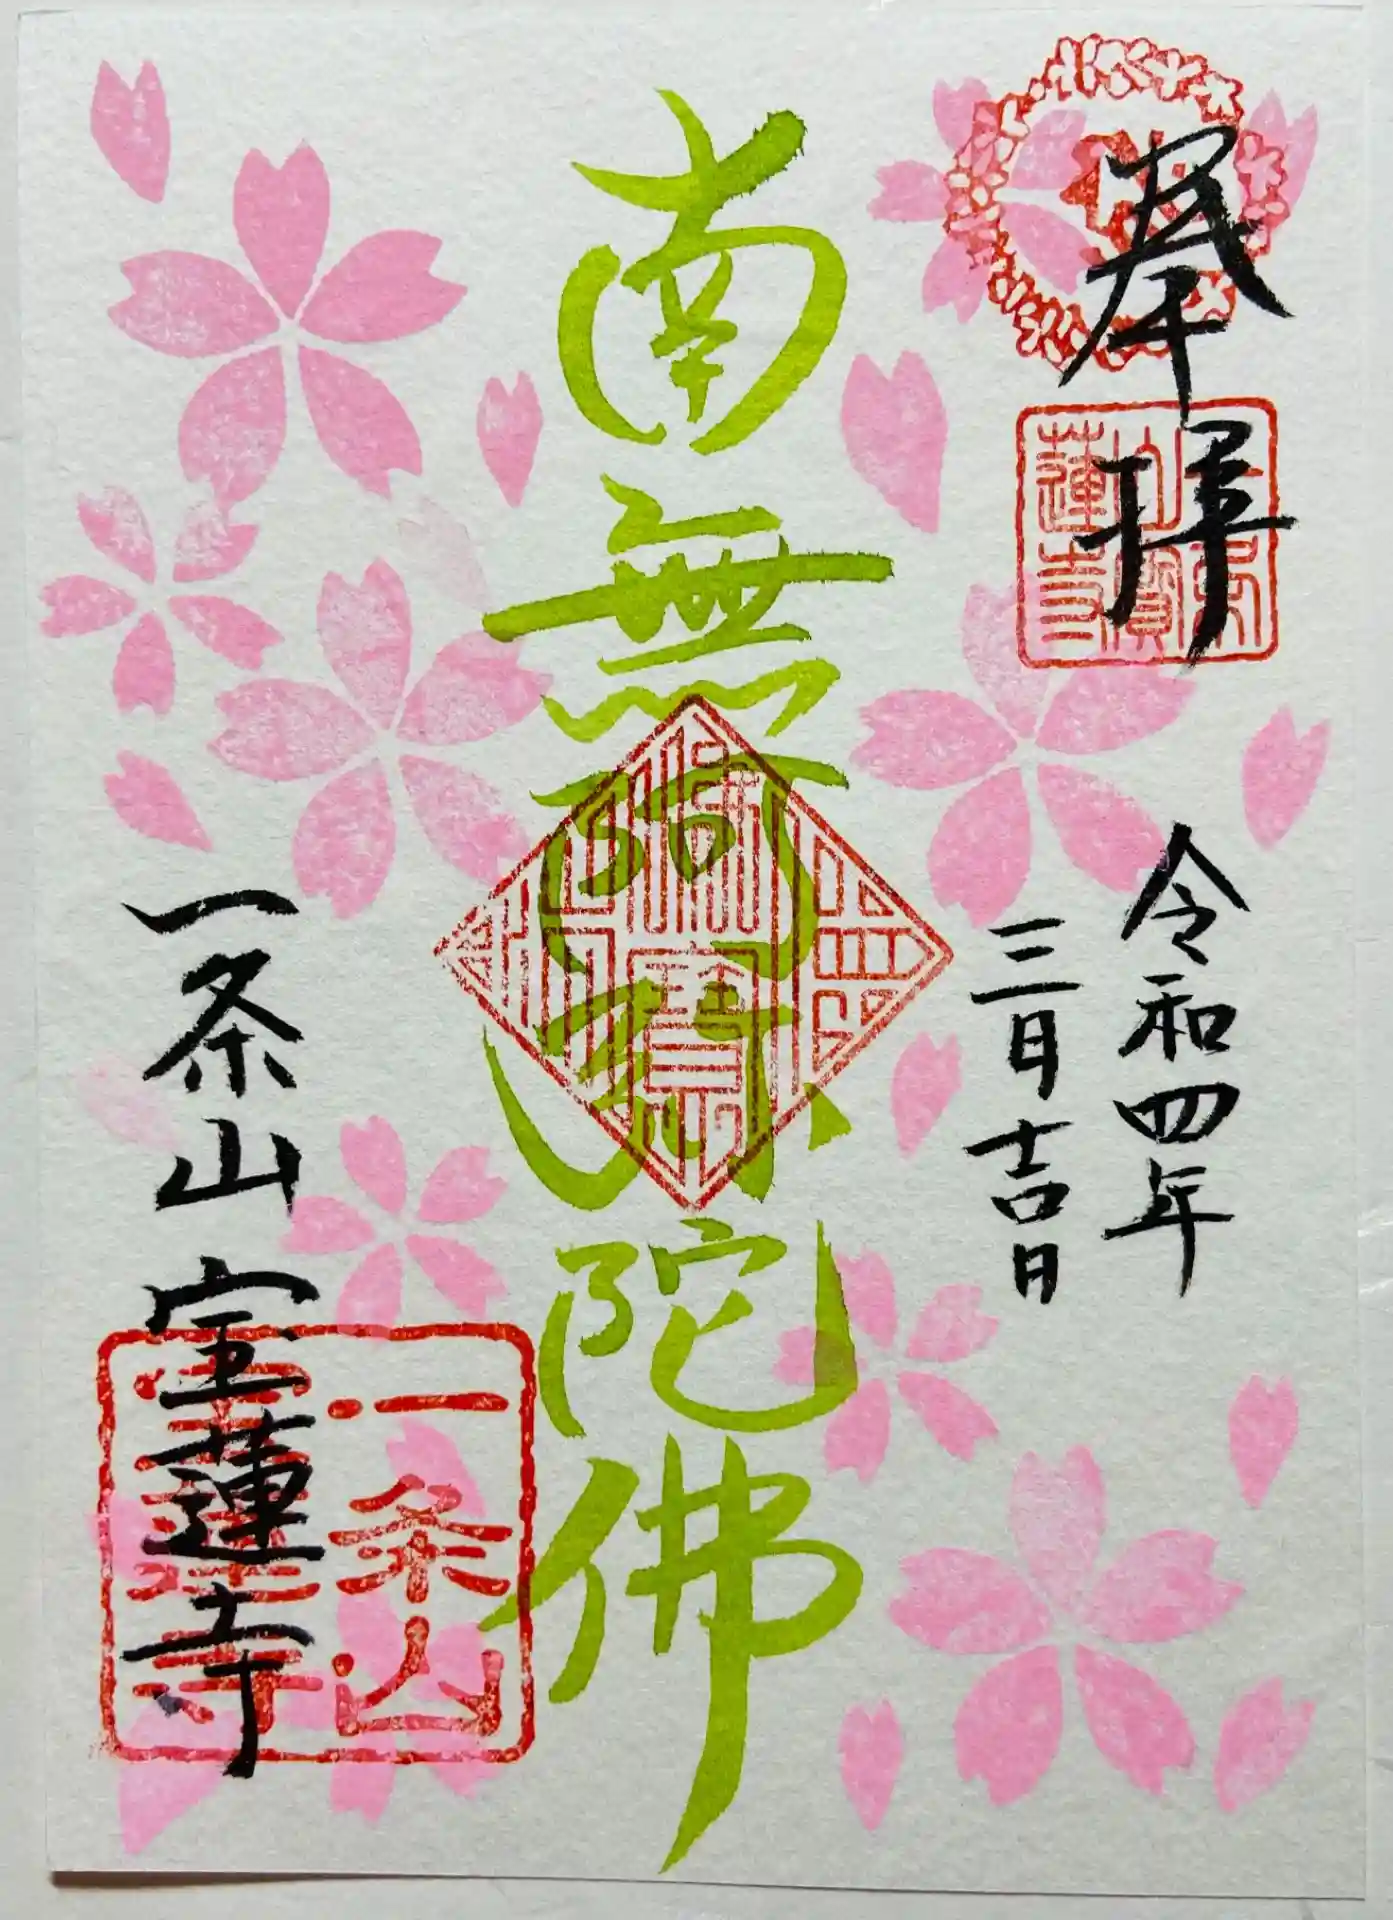 奉拝
令和四年
三日吉日
南無阿弥陀佛
一条山 宝蓮寺
一条山
宝蓮寺